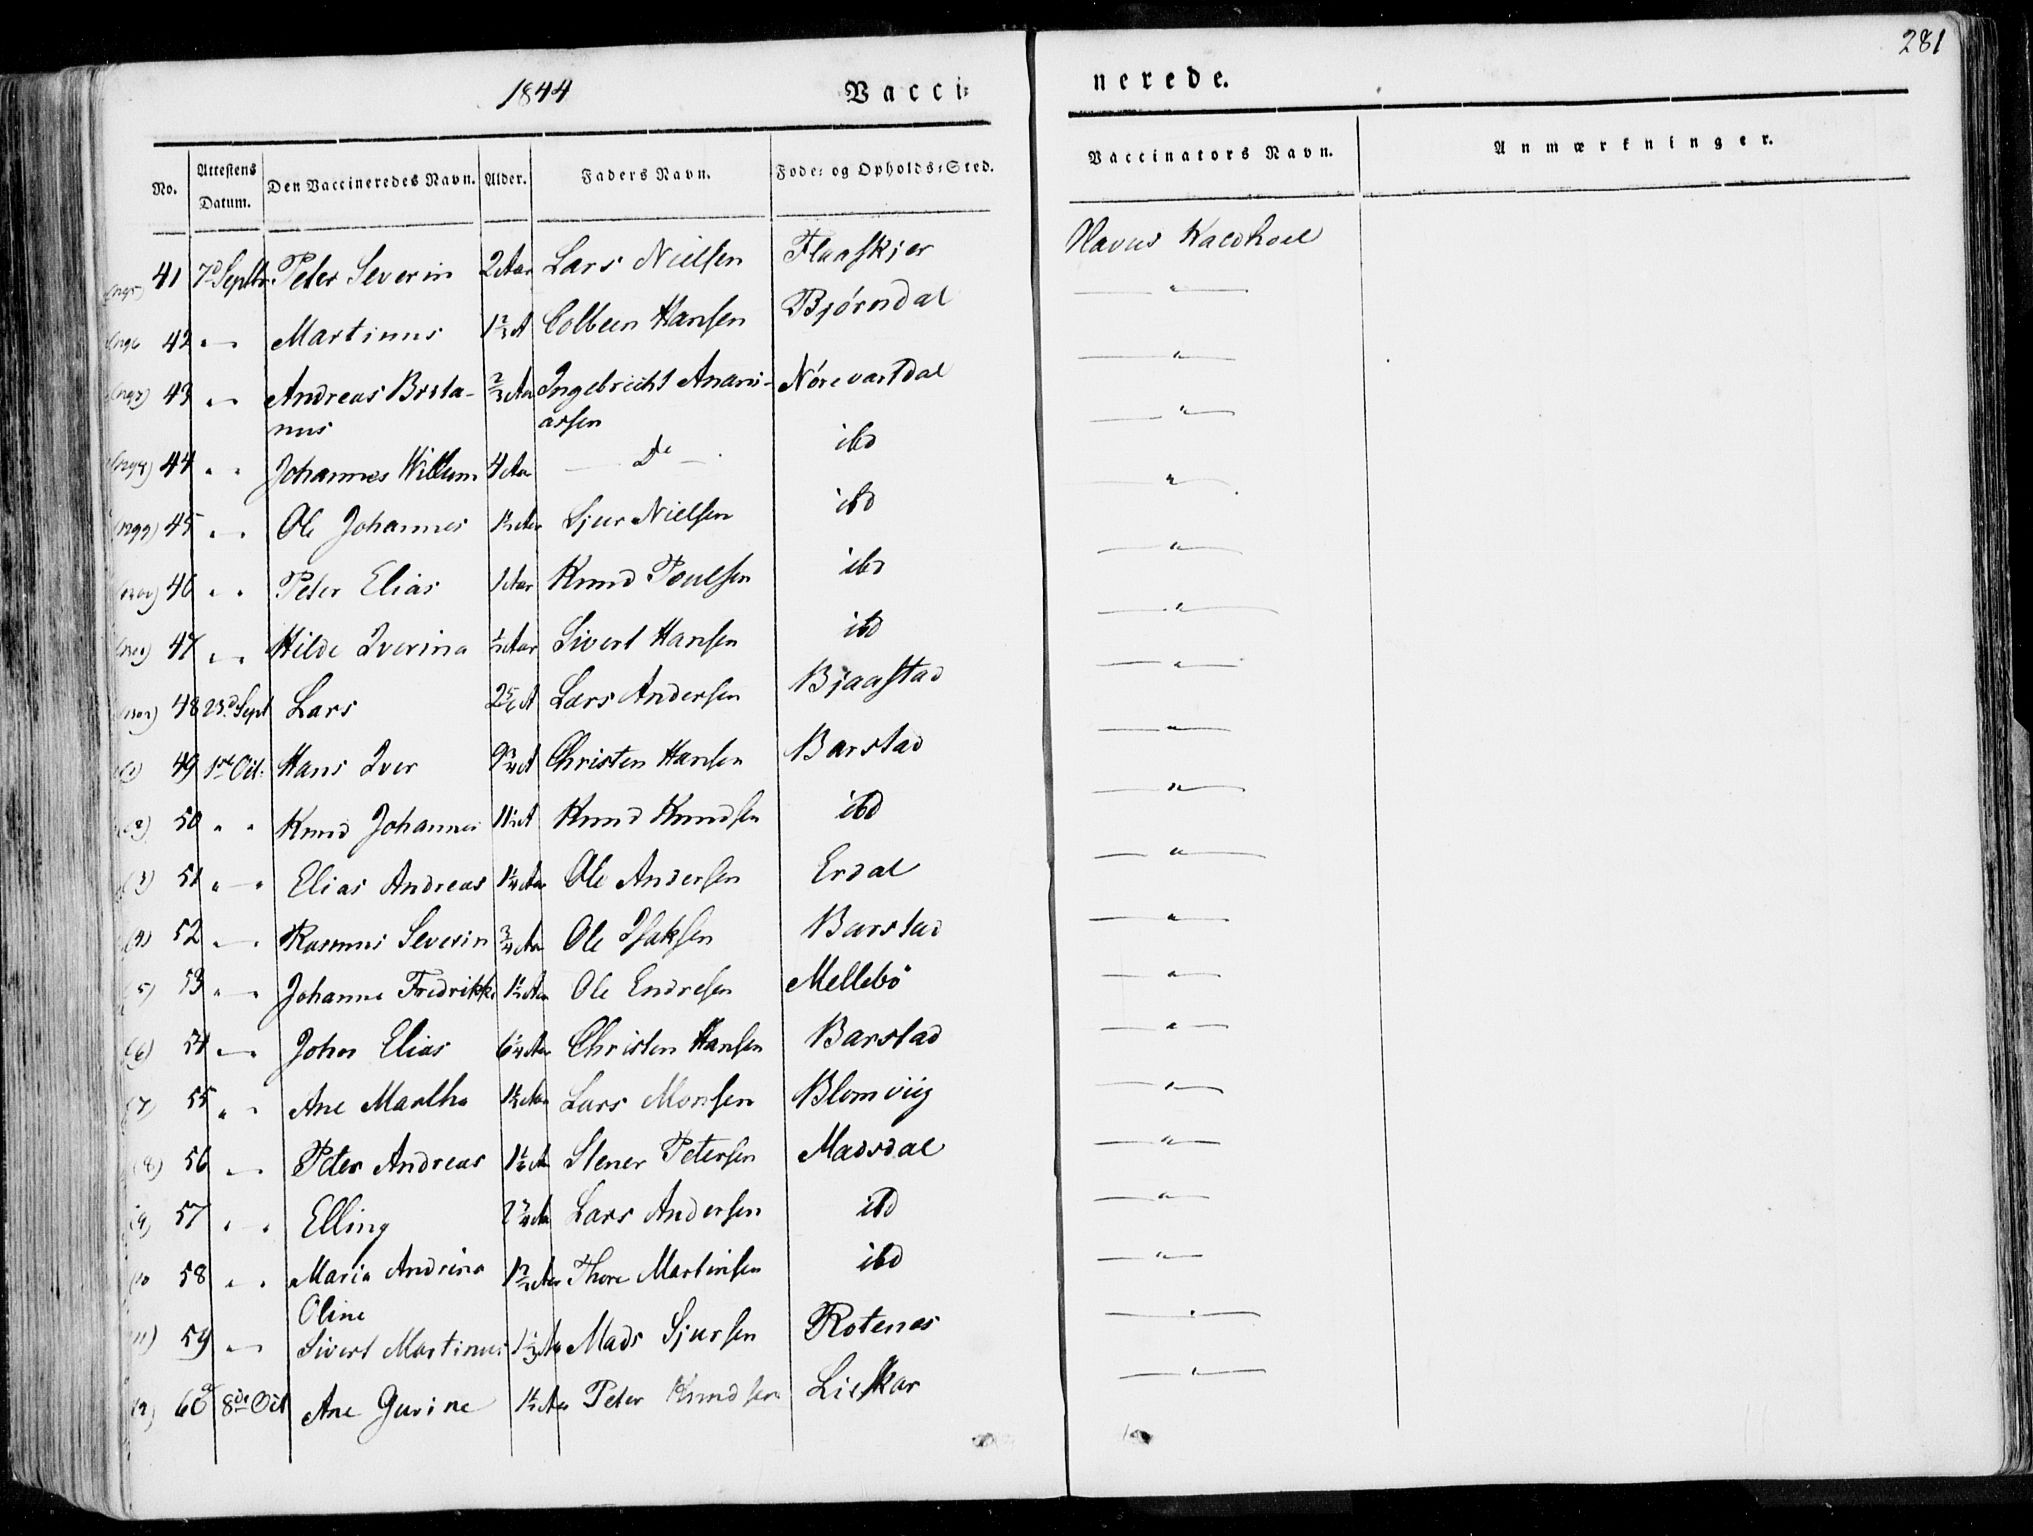 281
1844 Vacci= nerede.
No. Attestens Datum. Den Vaccineredes Navn. Alder. Faders Navn. Føde= og Opholds=Sted. Vaccinators Navn. Anmærkninger.
41 7d Septbr Peter Severin 2 Aar Lars Nielsen Flaaskjer Kaldhoel
42 " — " Martinus Colbeen Hansen Bjørndal — " —
43 " — " Andreas Bruta- Ingebricht Anani- Nørevartdal — " —
nus assen
44 " " Johannes Willum 4 Aar — Do — ibd — " —
45 " — " Ole Johannes Sjur Nielsen ibd — " —
46 " " Peter Elias 1 Aar Knud Poulsen ibd — " —
47 " — " Hilde Iverina ½ Aar Sivert Hansen ibd — " —
48 23d Sept Lars 2 5/6 A Lars Andersen Bjaastad — " —
49 1ste Oct: Hans Iver 9 ¾ A Christen Hansen Barstad — " —
50 " " Knud Johannes Knud Knudsen ibd — " —
51 " — " Elias Andreas 1 ¼ Aar Ole Andersen Erdal — " —
52 " — " Rasmus Severin ¾ Aar Ole Isaksen Barstad — " —
53 " — " Johanne Fredrikke 1 ½ Aar Ole Endresen Mellebö — " —
54 " — " John Elias 6 ¼ Aar Christen Hansen Barstad — " —
55 " " Ane Martha Lars Monsen Blomviig — " —
56 " — " Peter Andreas Stener Petersen Madsdal — " —
57 " — " Elling Lars Andersen ibd — " —
58 " " Maria Andrina Thore Martinsen ibd — " —
Oline
59 " — " Sivert Martinus 1 ⅓ Aar Mads Sjursen Rotenes — " —
60 8de Oct Ane Gurine 1 ½ Aar Peter Knudsen Lieskar — " —